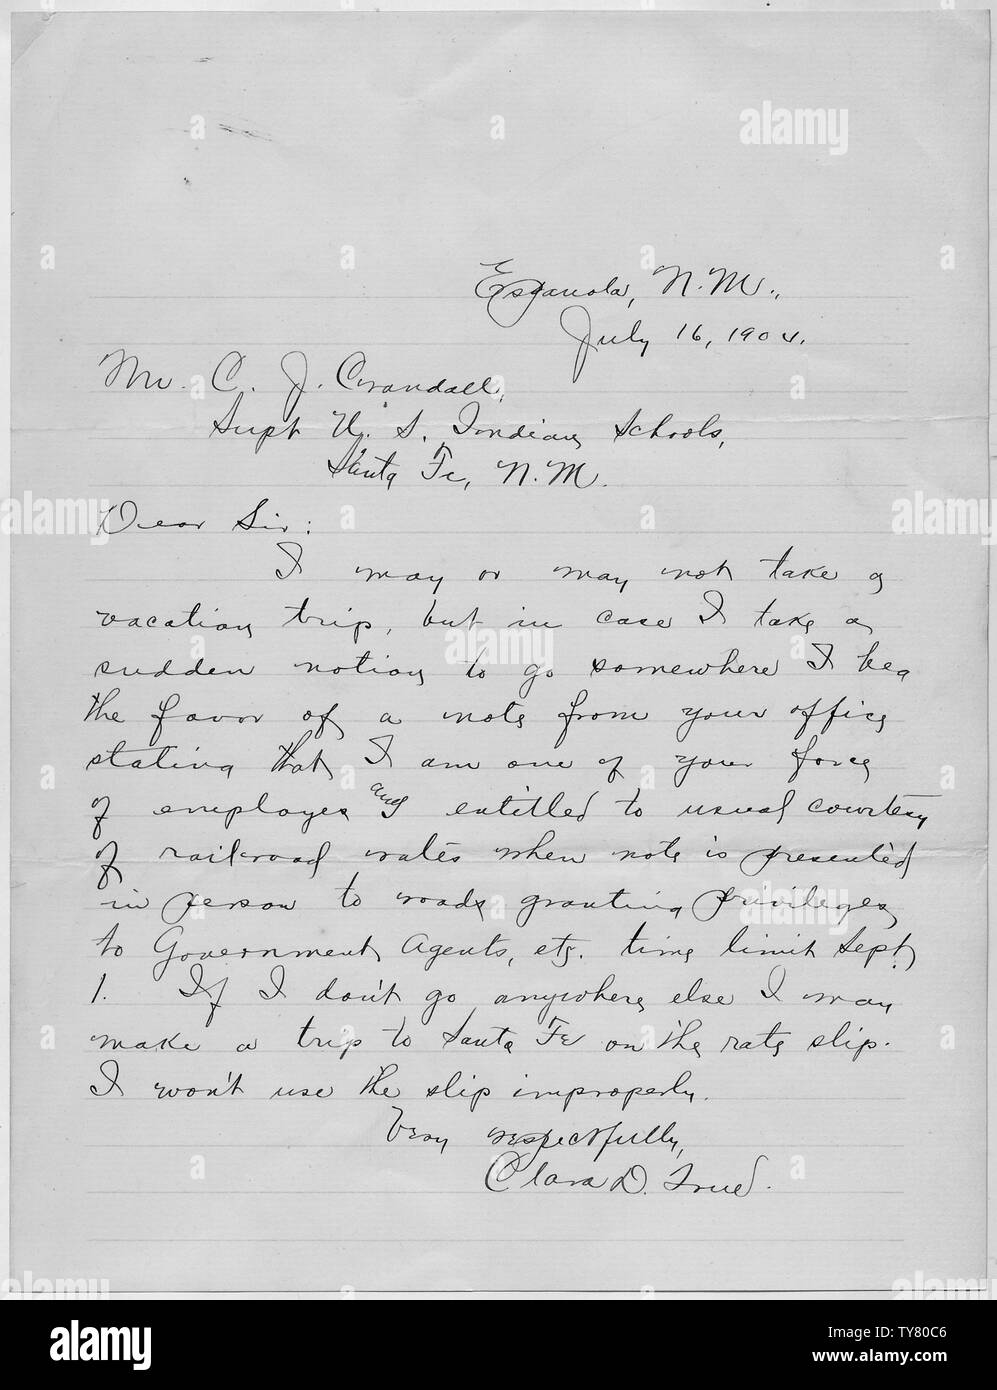 Espanola, N.M.,
July 16, 1904.
Mr. C. J. Crandall,
Supt U. S. Indian Schools,
Santa Fe, N.M.
Dear Sir:
I may or may not take a
vacation trip, but in case I take a
sudden notion to go somewhere I beg
the favor of a note from your office
stating that I am one of your force
of employes and entitled to usual courtesy
of railroad rates when note is presented
in person to roads granting privileges
to Government Agents, etc. time limit Sept.
1. If I don't go anywhere else I may
make a trip to Santa Fe on the rate slip.
I won't use the slip improperly.
Very respectfully,
Clara D. True.
alamy
Image ID: TY80C6
www.alamy.com